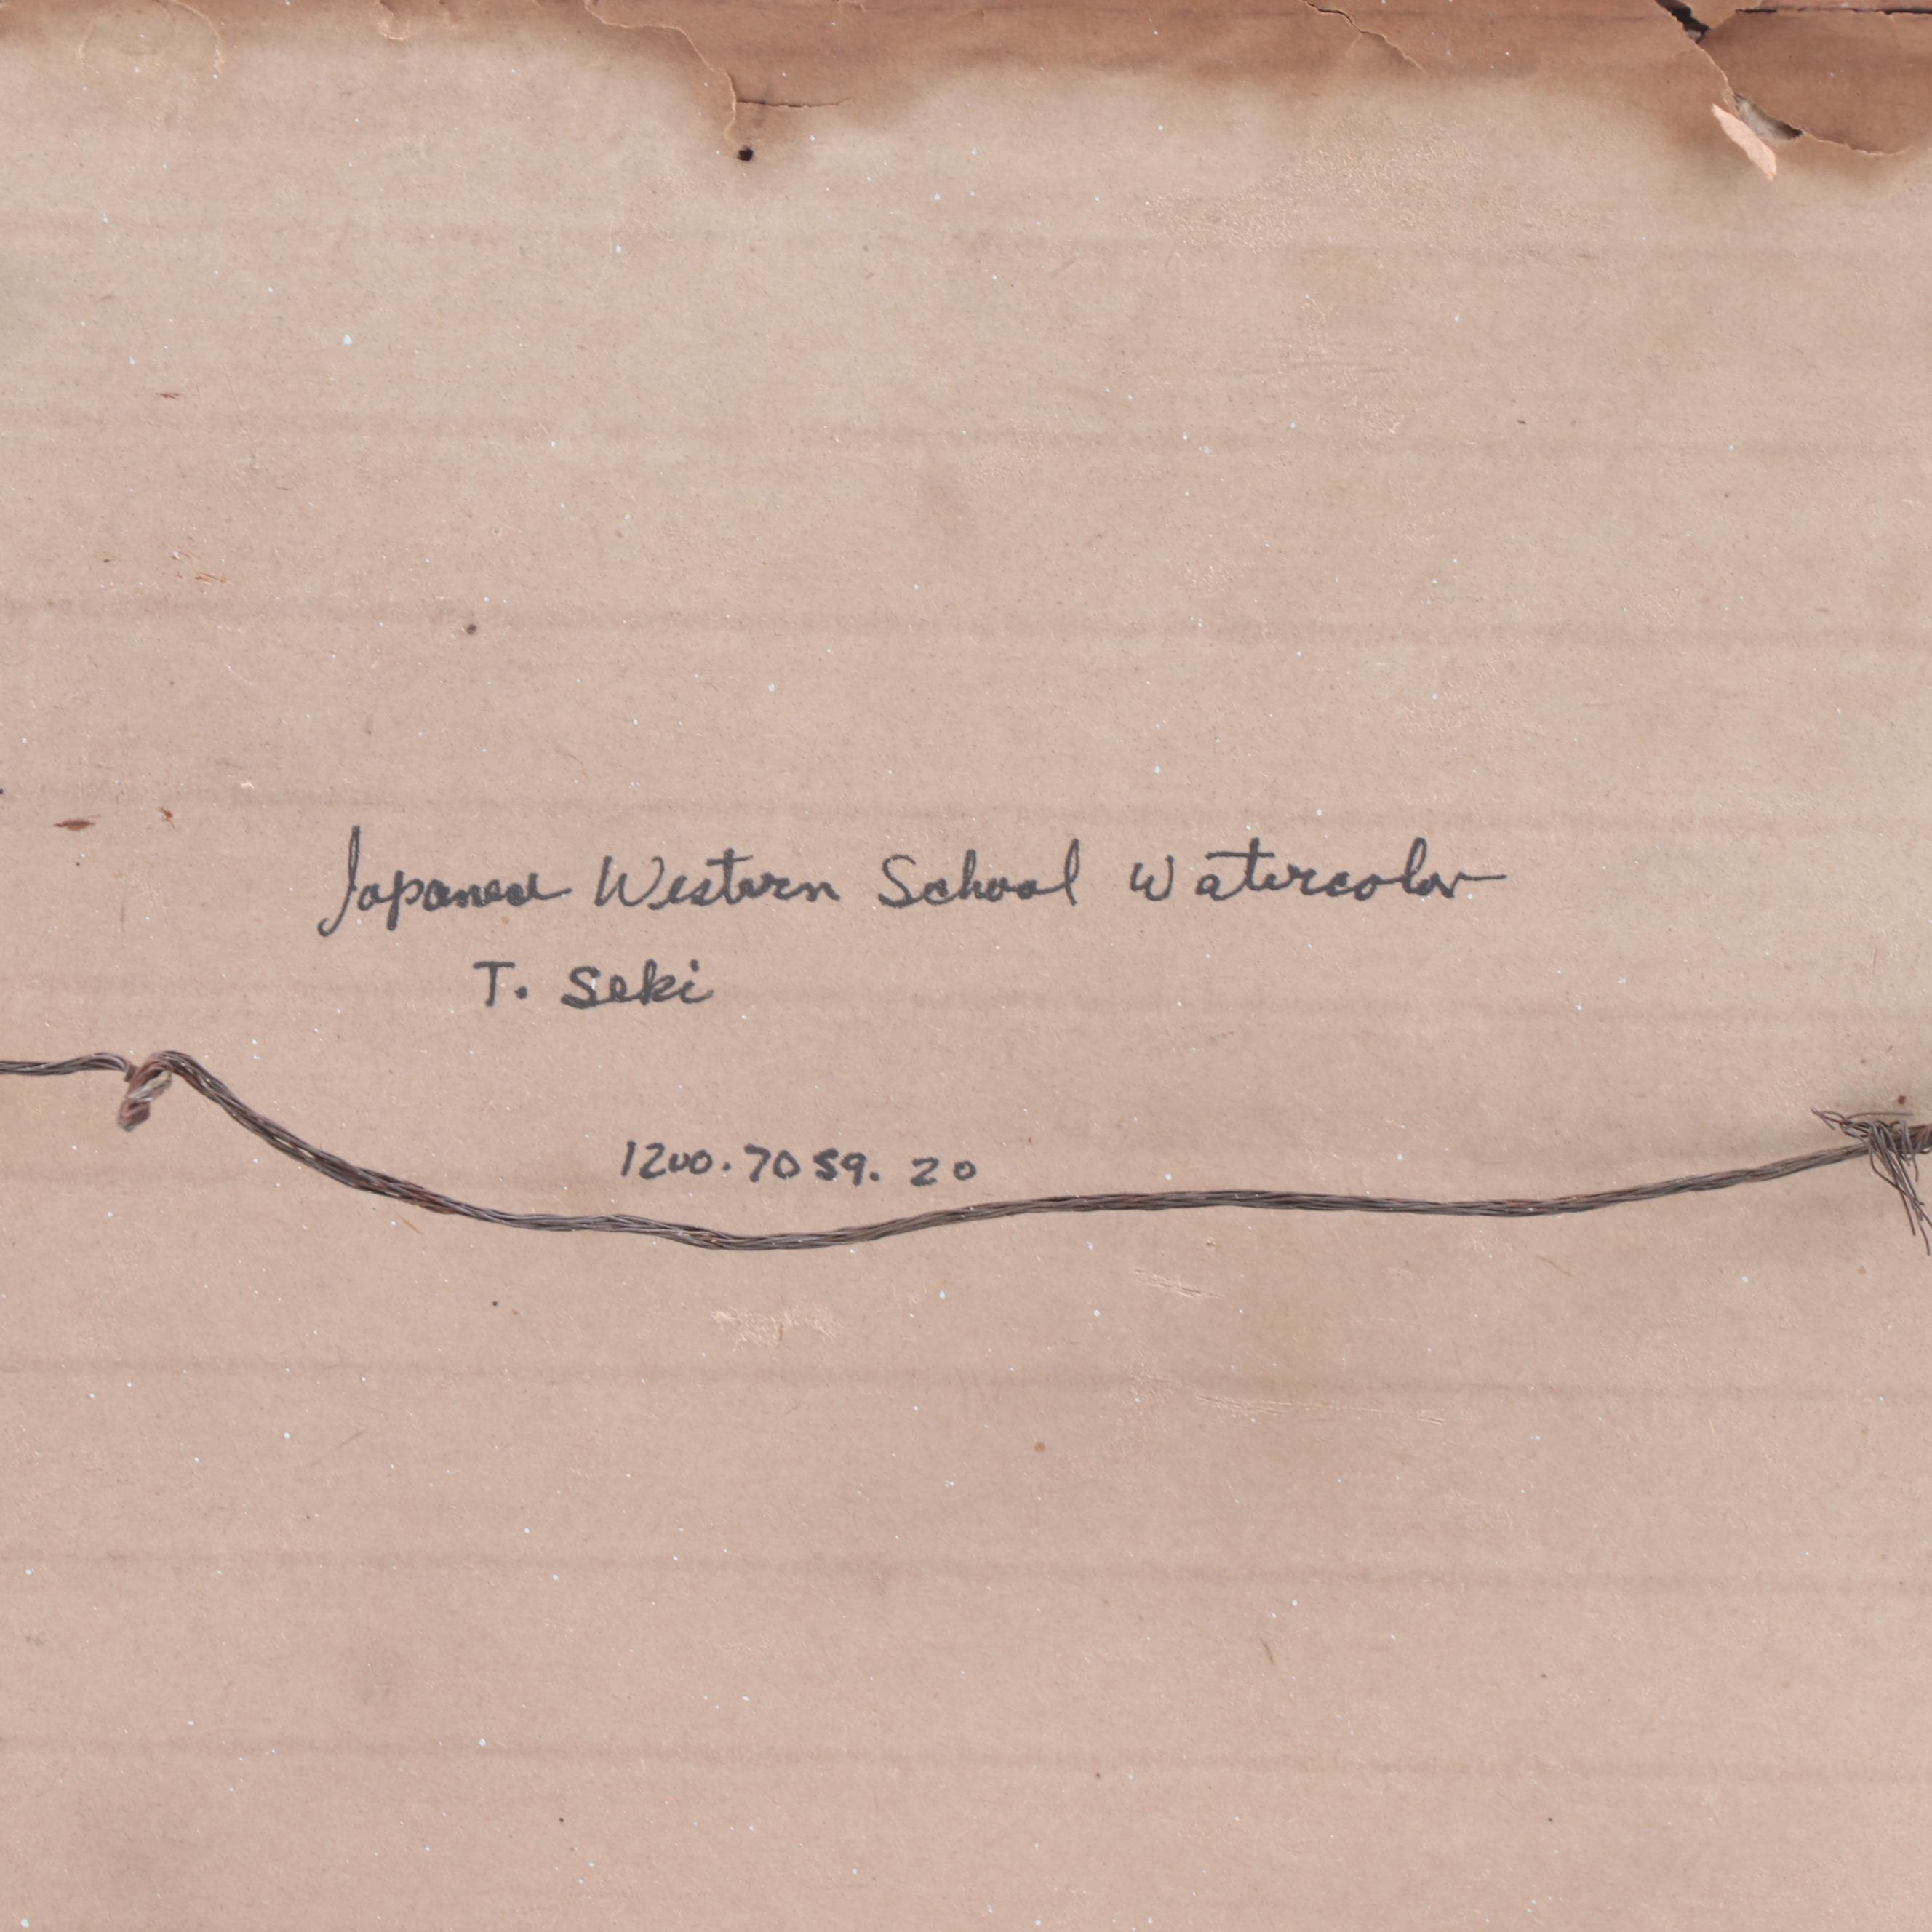 Japanese Western School Watercolor
T. Seki
1200.7059.20